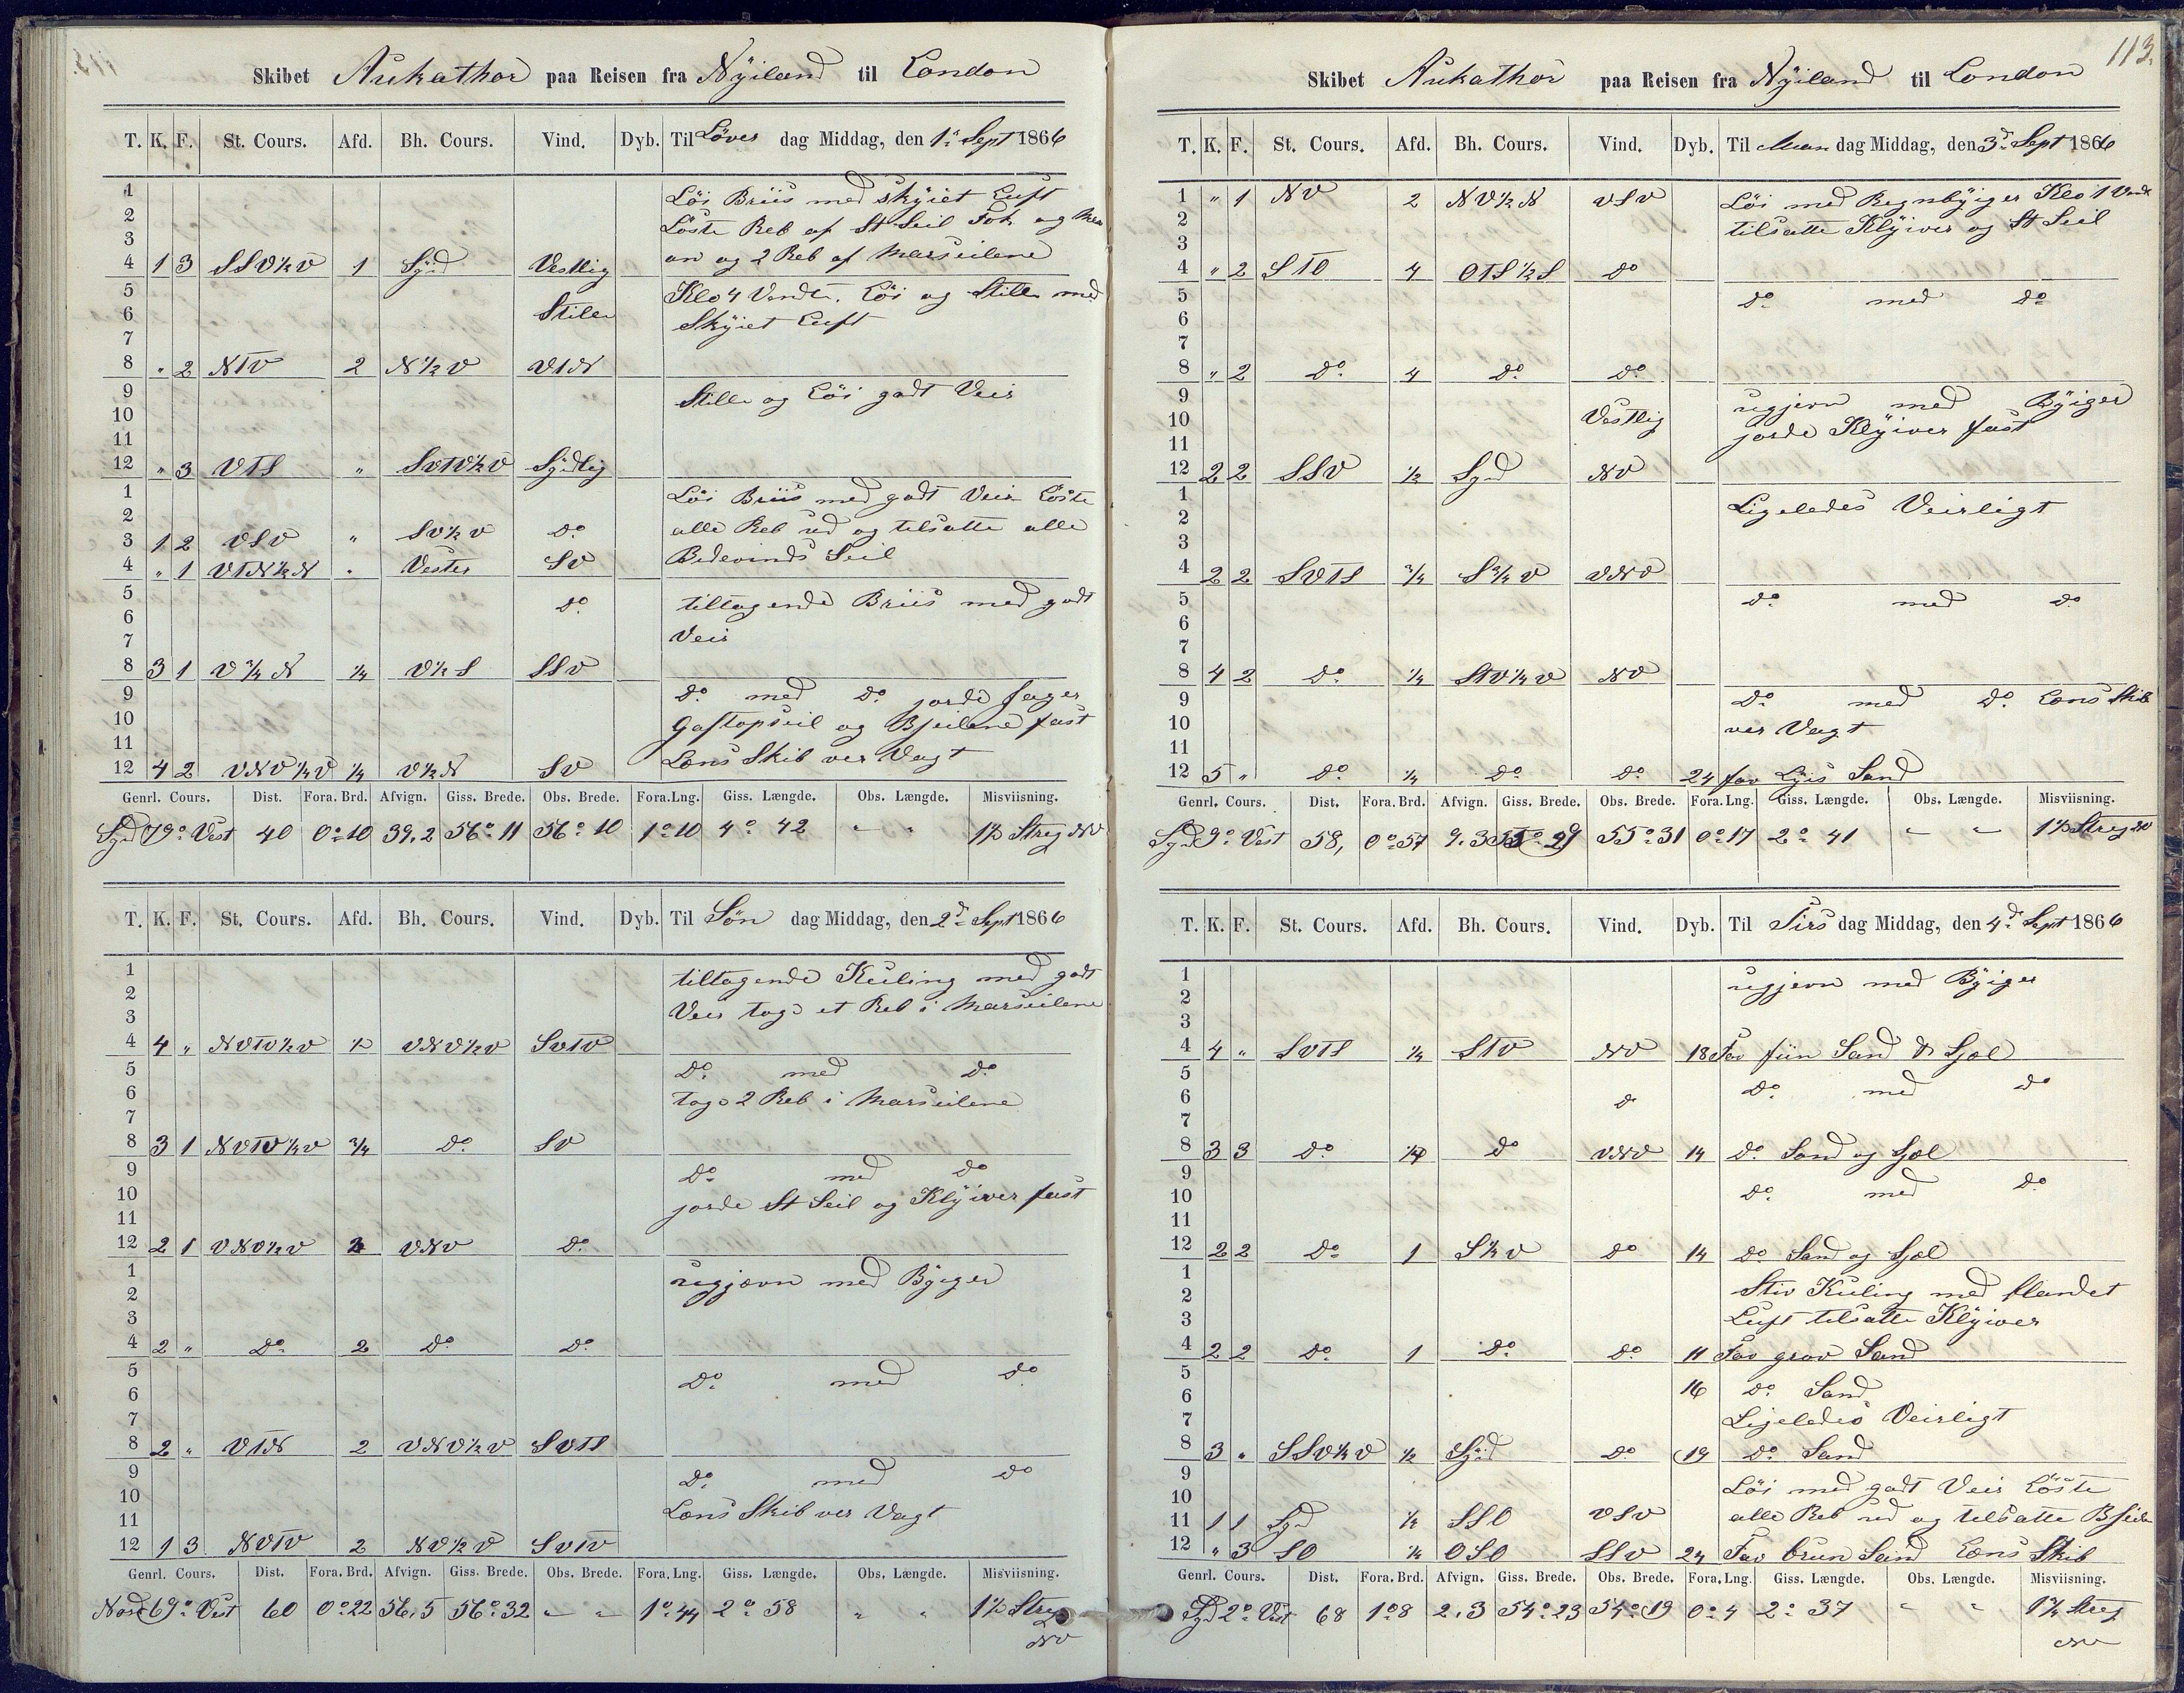 Skibet Aukathor paa Reisen fra Nÿiland til London
T. K. F. St. Cours. Afd. Bh. Cours. Vind. Dyb. Til Löver dag Middag, den 1ᵉ Sept 1866
1 Löi Briis med skÿiet Luft
2 Löste Reb af St Seil Fok og Mes
3 an og 2 Reb af Marseilene
4 1 3 SSV½V 1 Sÿd Vestlig
5 Klo 4 Vendte. Löi og Stille med
6 Stille Skÿiet Luft
7
8 " 2 NTV 2 N½V VTN
9 Stille og Löi godt Veir
10
11
12 " 3 VTS " SVTV½V Sÿdlig
1 Löi Briis med godt Veir Löste
2 alle Reb ud og tilsatte alle
3 1 2 VSV " SV½V Do
4 " 1 VTN½N " Vester SV Bidevinds Seil
5 Do tiltagende Briis med godt
6 Veir
7
8 3 1 V¾N ¼ V½S SSV
9 Do med Do jorde Jager
10 Gaftopseil og Bseilene fast
11 Lens Skib ver Vagt
12 4 2 VNV¼V ¼ V½N SV
Genrl. Cours. Dist. Fora. Brd. Afvign. Giss. Brede. Obs. Brede. Fora.Lng. Giss. Længde. Obs. Længde. Misviisning.
Syd 79° Vest 40 0°10 39,2 56°11 56°10 1°10 4° 42 " " 1½ Streg NV
T. K. F. St. Cours. Afd. Bh. Cours. Vind. Dyb. Til Sön dag Middag, den 2d Sept 1866
1 tiltagende Kuling med godt
2 Veir tog et Reb i Marseilene
3
4 4 " NVTV½V ½ VNV½V SVTV
5 Do med Do
6 tog 2 Reb i Marseilene
7
8 3 1 NVTV¼V ¾ Do SV
9 Do med Do
10 jorde St Seil og Klÿiver fast
11
12 2 1 VNV½V 2 VNV Do
1 ugjævn med Bÿiger
2
3
4 2 " Do 2 Do Do
5 Do med Do
6
7
8 2 " VTN 2 VNV½V SVTS
9 Do med Do
10 Lens Skib ver Vagt
11
12 1 3 NVTV 2 NV½V SVTV
Genrl. Cours. Dist. Fora. Brd. Afvign. Giss. Brede. Obs. Brede. Fora. Lng. Giss. Længde. Obs. Længde. Misviisning.
Nord 69° Vest 60 0°22 56,5 56°32 " " 1°44 2° 58 " " 1½ Streg
NV
113.
Skibet Aukathor paa Reisen fra Nÿiland til London
T. K. F. St. Cours. Afd. Bh. Cours. Vind. Dyb. Til Man dag Middag, den 3d Sept 1866
1 " 1 NV 2 NV½N VSV Löi med Regnbÿiger Klo 1 Vendt
2 tilsatte Klÿiver og St Seil
3
4 " 2 STO 4 OTS½S Do
5 Do med Do
6
7
8 " 2 Do 4 Do Do
9 ugjevn med Bÿiger
10 Vestlig jorde Klÿiver fast
11
12 2 2 SSV ½ Syd NV
1 Ligeledes Veirligt
2
3
4 2 2 SVTS ¾ S¾V VNV
5 Do med Do
6
7
8 4 2 Do ¼ STV¼V NV
9 Do med Do Lens Skib
10 ver Vagt
11
12 5 " Do ¼ Do Do 24 fav Lÿis Sand
Genrl. Cours. Dist. Fora. Brd. Afvign. Giss. Brede. Obs. Brede. Fora. Lng. Giss. Længde. Obs. Længde. Misviisning.
Syd 9° Vest 58, 0°57 9.3 55°29 55°31 0°17 2° 41 " " 1½ Streg NV
T. K. F. St. Cours. Afd. Bh. Cours. Vind. Dyb. Til Tirs dag Middag, den 4d Sept 1866
1 ugjevn med Bÿiger
2
3
4 4 " SVTS ¼ STV NV 18 Fav fiin Sand & Sjæl
5 Do med Do
6 Do
7
8 3 3 Do Do VNV 14 Do Sand og Sjæl
9
10 Do med Do
11
12 2 2 Do 1 S½V Do 14 Do Sand og Sjæl
1 Stiv Kuling med flandet
2
3 Luft tilsatte Klÿiver
4 2 2 Do 1 Do Do 11 Fav grov Sand
5
6 16 Do Sand
7 Ligeledes Veirligt
8 3 " SSV¼V ½ Sÿd Do 19 Do Sand
9 Löi med godt Veir Löste
10
11 1 1 Syd ½ SSO VSV alle Reb ud og tilsatte Bseile
12 " 3 SO ¼ OSO SSV 24 Fav brun Sand Lens Skib
Genrl. Cours. Dist. Fora. Brd. Afvign. Giss. Brede. Obs. Brede. Fora. Lng. Giss. Længde. Obs. Længde. Misviisning.
Syd 2° Vest 68 1°8 2,3 54°23 54°19 0°4 2° 37 " " 1¾ Streg
NV